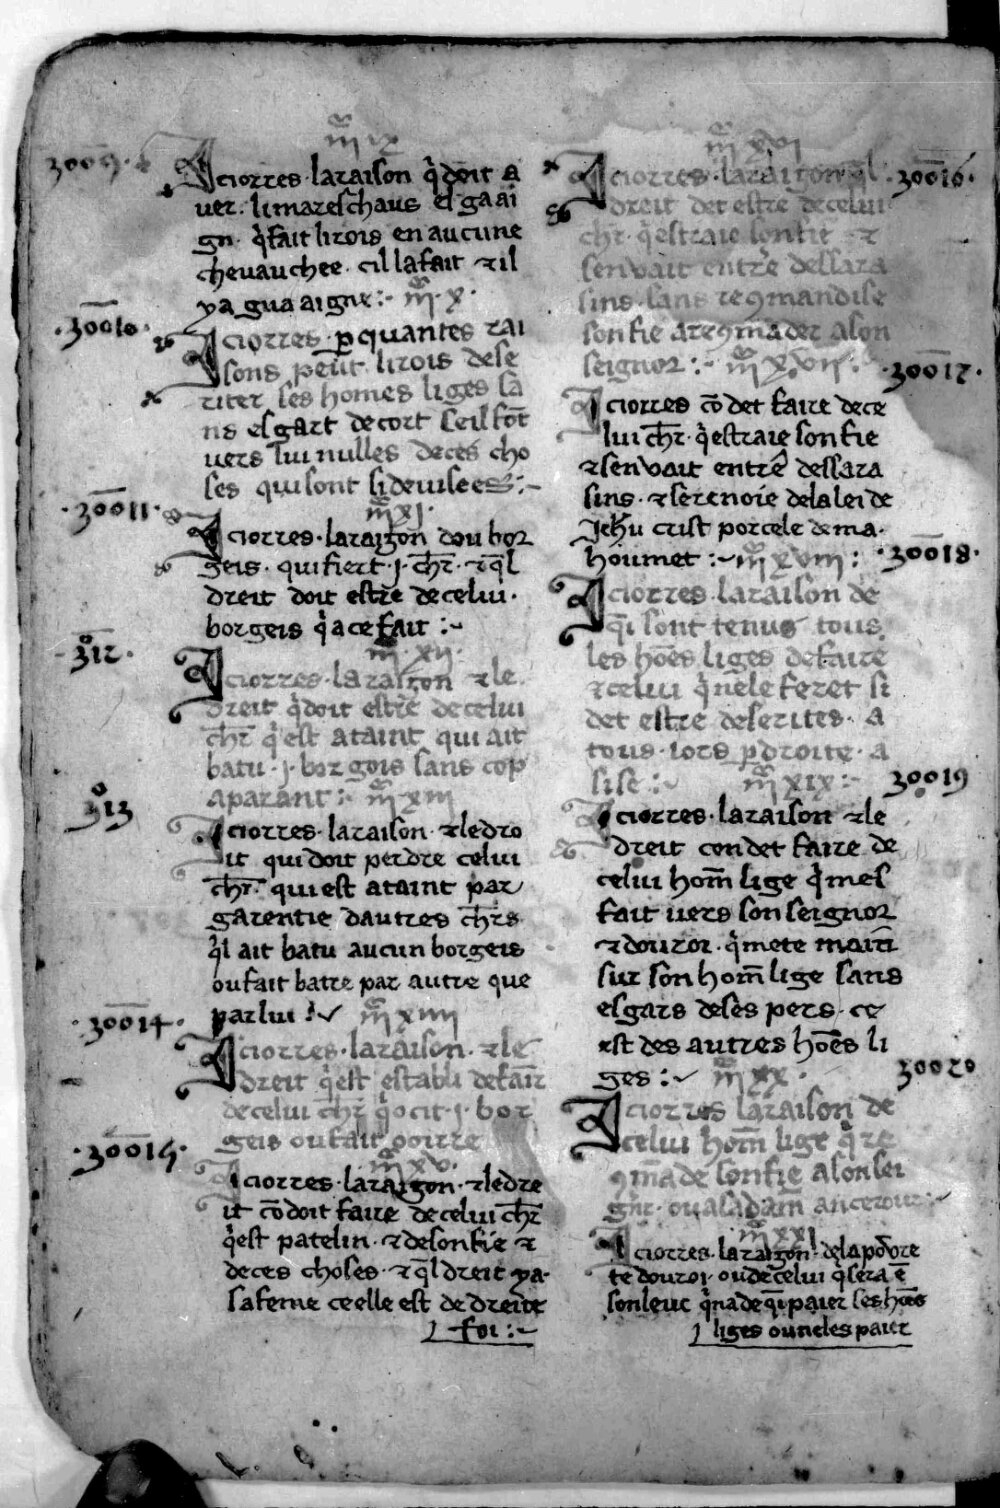 .iiij͛. ix
3009.
Aciorres · la raison q̇ doit a
uer · li mareschaus el gaai
gn · q̇ fait li rois en aucune
chevauchee · cil la fait · ⁊ il
ya gua aigne : iiij͛ · x ·
· 30010 ·
Aciorres · ꝑ quantes rai
sons peut li rois dese
riter ses homes liges sa
ns esgart de cort seil font
uers lui nulles de ces cho
ses qui sont si deuisees :~
iiij͛ xi ·
· 30011 ·
Aciorres · la raizon dou bor
geis · qui fiert · j · ch̅r · ⁊ q̄l
dreit doit estre de celui ·
borgeis q̇ a ce fait :~
iiij͛ · xii ·
· 312 ·
Aciorres · la raizon ⁊ le
dreit q̇ doit estre de celui
ch̅r q̇ est ataint qui ait
batu · j · borgois sans cop
aparant : iiij͛ xiii
313
Aciorres · la raison · ⁊ le dro
it qui doit perdre celui
ch̅r · qui est ataint par
garentie dautres ch̅rs
q̇l ait batu aucun borgeis
ou fait batre par autre que
par lui :~ iiij͛ xiiii
· 30014 ·
Aciorres · la raison · ⁊ le
dreit q̇ est establi de fair
de celui ch̅r q̇ ocit · j · bor
geis ou fait ocirre
iiij͛ xv ·
· 30015 ·
Aciorres · la raizon · ⁊ le dre
it cō doit faire de celui ch̅r
q̇ est patelin · ⁊ de son fie ⁊
de ces choses · ⁊ q̄l dreit ya ·
sa feme ce elle est de dreite
foi :~
iiij͛ xvi
· 30016 ·
Aciorres · la raizon q̄l
dreit det estre de celui
ch̅r · q̇ estraie son fie ⁊
sen vait entre des sara
sins · sans recomandise
son fie a recomāder a son
seignor :~ iiij͛ xvii :
· 30017 ·
Aciorres cō det faire de ce
lui ch̅r · q̇ estraie son fie
⁊ sen vait entre des sara
sins · ⁊ se renoie de la lei de
Jehū crist por cele de ma ·
houmet :~ iiij͛ xviii :
· 30018
Aciorres · la raison de
q̄i sont tenus tous
les hōes liges de faire
⁊ celui q̇ nele feret si
det estre deserites · a
tous · iors ꝑ droite · a
sise :~ iiij͛ xix :~
30019
Aciorres · la raison ⁊ le
dreit con det faire de
celui hom̄ lige q̇ mes
fait uers son seignor
⁊ dou roi · q̇ mete main
sur son hom̄ lige sans
esgars de ses pers · ce
est des autres hōes li
ges :~ iiij͛ xx ·
30020
Aciorres la raison de
celui hom̄ lige q̇ re
comāde son fie a son sei
gn̄r · ou a sa dam̄
iiij͛ xxi
Aciorres · la raizon · de la povre
te dou roi · ou de celui q̇ sera ē
son leuc q̇ na de q̄i paier ses hōes
liges ou ne les paier